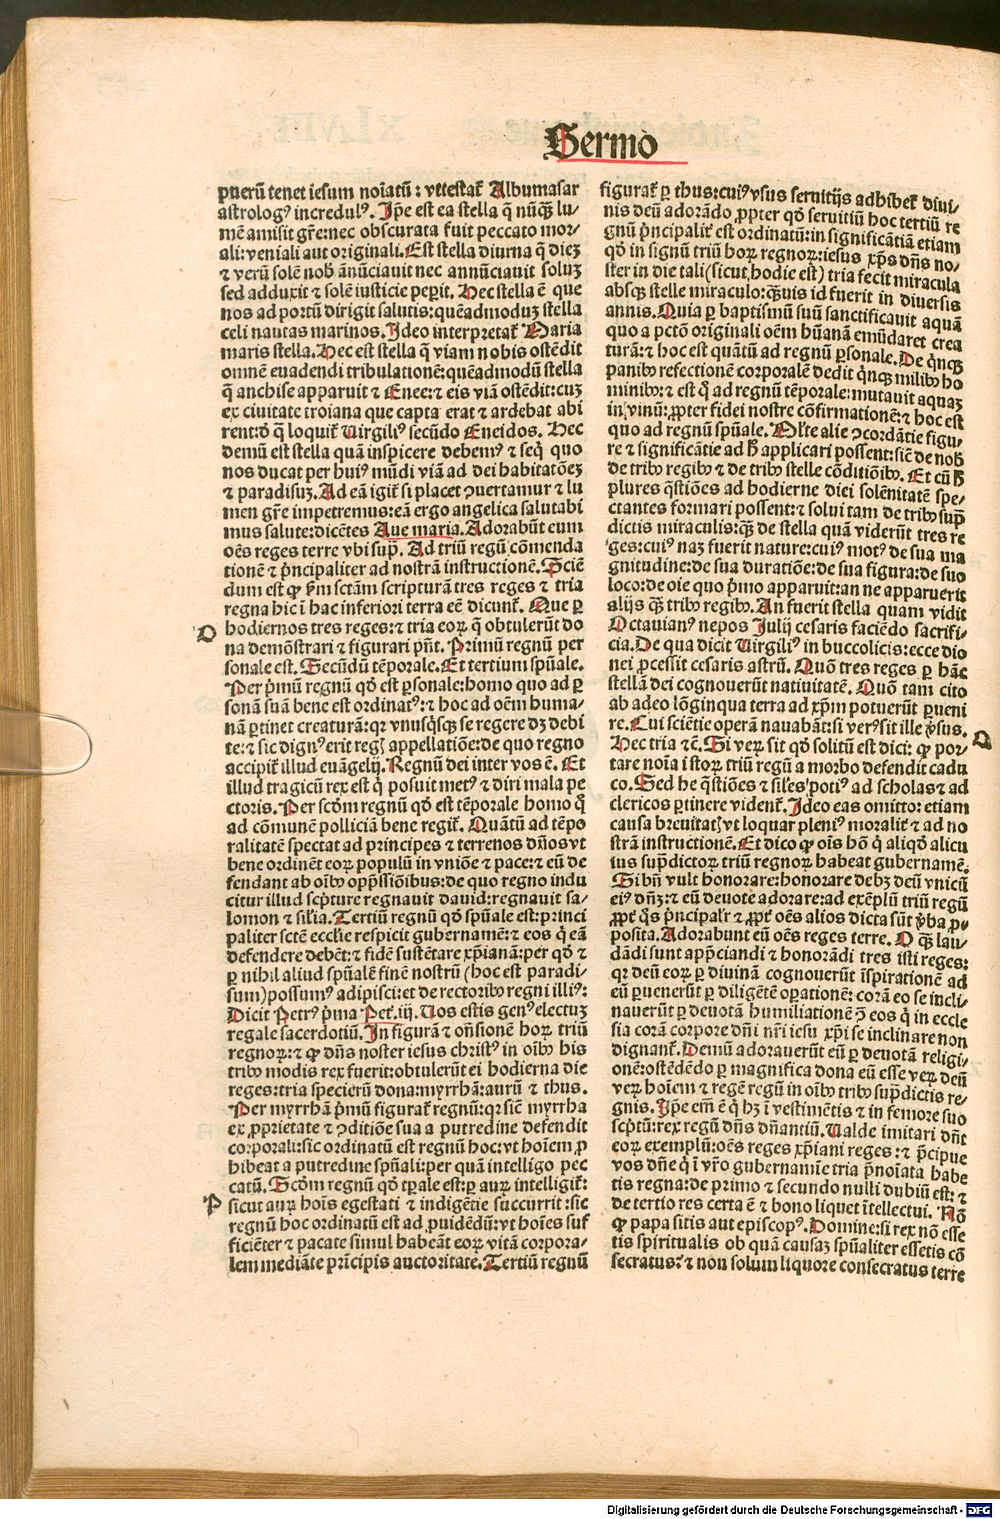 Sermo
puerū tenet iesum noīatū : vt testat᷑ Albumasar
astrologꝰ incredulꝰ. Ip̄e est ea stella q̄ nūq̄ꝫ lu⸗
mē amisit gr̄e: nec obscurata fuit peccato mor⸗
ali: veniali aut originali. Est stella diurna q̄ dieꝫ
⁊ verū solē nob̄ ānūciauit nec annūciauit soluꝫ
sed adduxit ⁊ solē iusticie peꝑit. Hec stella ē que
nos ad portū dirigit salutis: quēadmoduꝫ stella
celi nautas marinos. Ideo interpretat᷑ Maria
maris stella. Hec est stella q̄ viam nobis ostēdit
omnē euadendi tribulationē: quēadmodū stella
q̄ anchise apparuit ⁊ Enee: ⁊ eis viā ostēdit: cuꝫ
ex ciuitate troiana que capta erat ⁊ ardebat abi
rent: d̄ q̄ loquit᷑ Uirgiliꝰ secūdo Eneidos. Hec
demū est stella quā inspicere debemꝰ ⁊ seq̇ quo
nos ducat per huiꝰ mūdi viā ad dei habitatōeꝫ
⁊ paradisuꝫ. Ad eā igit᷑ si placet ꝯuertamur ⁊ lu
men gr̄e impetremus: eā ergo angelica salutabi
mus salute: dicētes Aue maria. Adorabūt eum
oēs reges terre vbi sup̄. Ad triū regū cōmenda
tionē ⁊ p̍ncipaliter ad nostrā instructionē. Sciē
dum est ꝙ ẜm sctām scripturā tres reges ⁊ tria
regna hic ī hac inferiori terra eē dicunt᷑. Que ꝑ
O
hodiernos tres reges: ⁊ tria eoꝝ q̄ obtulerūt do
na demōstrari ⁊ figurari pn̄t. Primū regnū per
sonale est. Secūdū tēporale. Et tertium spūale.
Per p̍mū regnū qd̄ est ꝑsonale: homo quo ad ꝑ
sonā suā bene est ordinatꝰ: ⁊ hoc ad oēm huma⸗
nā ꝑtinet creaturā: qꝛ vnusq̍sqꝫ se regere dꝫ debi
te: ⁊ sic dignꝰ erit regꝭ appellatiōe: de quo regno
accipit᷑ illud euāgelij. Regnū dei inter vos ē. Et
illud tragicū rex est q̍ posuit metꝰ ⁊ diri mala pe
ctoris. Per scd̄m regnū qd̄ est tēporale homo q̍
ad cōmunē polliciā bene regit᷑. Quātū ad tēpo
ralitatē spectat ad principes ⁊ terrenos dn̄os vt
bene ordinēt eoꝝ populū in vniōe ⁊ pace: ⁊ eū de
fendant ab oībꝫ opp̄ssiōibus: de quo regno indu
citur illud scp̄ture regnauit dauid: regnauit sa⸗
lomon ⁊ sil̄ia. Tertiū regnū qd̄ spūale est: princi
paliter sctē eccl̄ie respicit gubernamē: ⁊ eos q̍ eā
defendere debēt: ⁊ fidē sustētare xp̄ianā: per qd̄ ⁊
ꝑ nihil aliud spūalē finē nostrū (hoc est paradi⸗
sum) possumꝰ adipisci: et de rectoribꝫ regni illiꝰ:
Dicit Petrꝰ p̍ma Pet᷑. iij. Uos estis genꝰ electuꝫ
regale sacerdotiū. In figurā ⁊ oñsionē hoꝝ triū
regnoꝝ: ⁊ ꝙ dn̄s noster iesus christꝰ in oībꝫ his
tribꝫ modis rex fuerit: obtulerūt ei hodierna die
reges: tria specierū dona: myrrhā: aurū ⁊ thus.
Per myrrhā p̍mū figurat᷑ regnū: qꝛ siē myrrha
ex ꝓprietate ⁊ ꝯditiōe sua a putredine defendit
corporali: sic ordinatū est regnū hoc: vt hoīem ꝓ
hibeat a putredine spūali: per quā intelligo pec
catū. Scd̄m regnū qd̄ tꝑale est: ꝑ auꝝ intelligit᷑:
P
sicut auꝝ hoīs egestati ⁊ indigētie succurrit : sic
regnū hoc ordinatū est ad ꝓuidēdū: vt hoīes suf
ficiēter ⁊ pacate simul habeāt eoꝝ vitā corpora⸗
lem mediāte pr̄icipis auctoritate. Tertiū regnū
figurat᷑ ꝑ thus: cuiꝰ vsus seruitijs adhibet᷑ diui⸗
nis deū adorādo ꝓpter qd̄ seruitiū hoc tertiū re
gnū p̍ncipalit᷑ est ordinatū: in significātiā etiam
qd̄ in signū triū hoꝝ regnoꝝ: iesus xp̄s dn̄s no⸗
ster in die tali (sicut hodie est) tria fecit miracula
absqꝫ stelle miraculo: q̄ꝫuis id fuerit in diuersis
annis. Quia ꝑ baptismū suū sanctificauit aquā
quo a pctō originali oēm hūanā emūdaret crea
turā: ⁊ hoc est quātū ad regnū ꝑsonale. De q̍nqꝫ
panibꝫ refectionē corporalē dedit q̍nqꝫ milibꝫ ho
minibꝫ: ⁊ est q̄ ad regnū tēporale: mutauit aquaꝫ
in vinū: ꝓpter fidei nostre cōfirmationē: ⁊ hoc est
quo ad regnū spūale. Ml̄te alie ꝯcordātie figu⸗
re ⁊ significātie ad h̄ applicari possent: siē de nob̄
de tribꝫ regibꝫ ⁊ de tribꝫ stelle cōditiōibꝫ. Et cū h̄
plures q̄stiōes ad hodierne diei solēnitatē spe⸗
ctantes formari possent: ⁊ solui tam de tribꝫ sup̄
dictis miraculis: q̄ꝫ de stella quā viderūt tres re
ges: cuiꝰ naꝫ fuerit nature: cuiꝰ motꝰ de sua ma
gnitudine: de sua duratiōe: de sua figura: de suo
loco: de die quo p̍mo apparuit: an ne apparuerit
alijs q̄ꝫ tribꝫ regibꝫ. An fuerit stella quam vidit
Octauianꝰ nepos Julij cesaris faciēdo sacrifi⸗
cia. De qua dicit Uirgiliꝰ in buccolicis: ecce dio
nei ꝓcessit cesaris astrū. Quō tres reges ꝑ hāc
stellā dei cognouerūt natiuitatē. Quō tam cito
ab adeo lōginqua terra ad xp̄m potuerūt ꝑueni
re. Cui sciētie operā nauabāt: si verꝰ sit ille ꝟsus.
Q
Hec tria ⁊cē. Si veꝝ sit qd̄ solitū est dici: ꝙ por⸗
tare noīa istoꝝ triū regū a morbo defendit cadu
co. Sed he q̄stiōes ⁊ siles potiꝰ ad scholas ⁊ ad
clericos ꝑtinere vident᷑. Ideo eas omitto: etiam
causa breuitatꝭ vt loquar pleniꝰ moralit᷑ ⁊ ad no
strā instructionē. Et dico ꝙ oīs hō q̍ aliqd̄ alicu
ius sup̄dictoꝝ triū regnoꝝ habeat gubernamē.
Si bn̄ vult honorare: honorare debꝫ deū vnicū
eiꝰ dn̄ꝫ: ⁊ eū deuote adorare: ad exēplū triū regū
ꝓpt᷑ q̍s p̍ncipalr̄ ⁊ ꝓpt᷑ oēs alios dicta sūt ꝟba ꝓ⸗
posita. Adorabunt eū oēs reges terre. O q̄ꝫ lau⸗
dādi sunt app̄ciandi ⁊ honorādi tres isti reges:
qꝛ deū eoꝝ ꝑ diuinā cognouerūt īspirationē ad
eū ꝑuenerūt ꝑ diligētē oꝑationē: corā eo se incli⸗
nauerūt ꝑ deuotā humiliationē ꝯ̄ eos q̍ in eccle
sia corā corpore dn̄i nr̄i iesu xp̄i se inclinare non
dignant᷑. Demū adorauerūt eū ꝑ deuotā religi⸗
onē: ostēdēdo ꝑ magnifica dona eū esse veꝝ deū
veꝝ hoīem ⁊ regē regū in oībꝫ tribꝫ sup̄dictis re⸗
gnis. Ip̄e em̄ ē q̍ hꝫ ī vestimētis ⁊ in femore suo
scp̄tū: rex regū dn̄s dn̄antiū. Ualde imitari dn̄t
eoꝝ exemplū: oēs reges xp̄iani reges: ⁊ p̄cipue
vos dn̄e q̍ ī vr̄o gubernamīe tria p̄noīata habe
tis regna: de primo ⁊ secundo nulli dubiū est: ⁊
de tertio res certa ē ⁊ bono liquet ītellectui. Nō
ꝙ papa sitis aut episcopꝰ. Domine: si rex nō esse
tis spiritualis ob quā causaꝫ spūaliter essetis cō
secratus? ⁊ non solum liquore consecratus terre
Digitalisierung gefördert durch die Deutsche Forschungsgemeinschaft - DFG